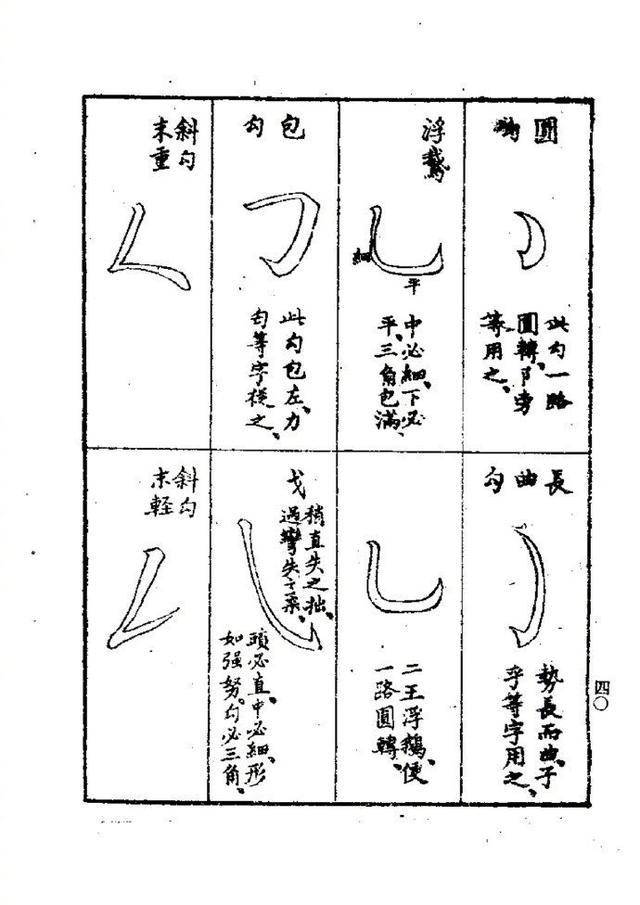 圓鈎
此勾一路
圓轉、阝旁
等用之、
浮鵝
細
平
中必細、下必
平、三角包滿、
包勾
此勾包左、力
勻等字樣之、
斜勾
末重
長曲勾
勢長而曲、子
乎等字用之、
二王浮鵝、便
一路圓轉、
戈
稍直失之拙、
過彎失之柔、
頭必直、中必細、形
如强努、勾必三角、
斜勾
末軽
四〇